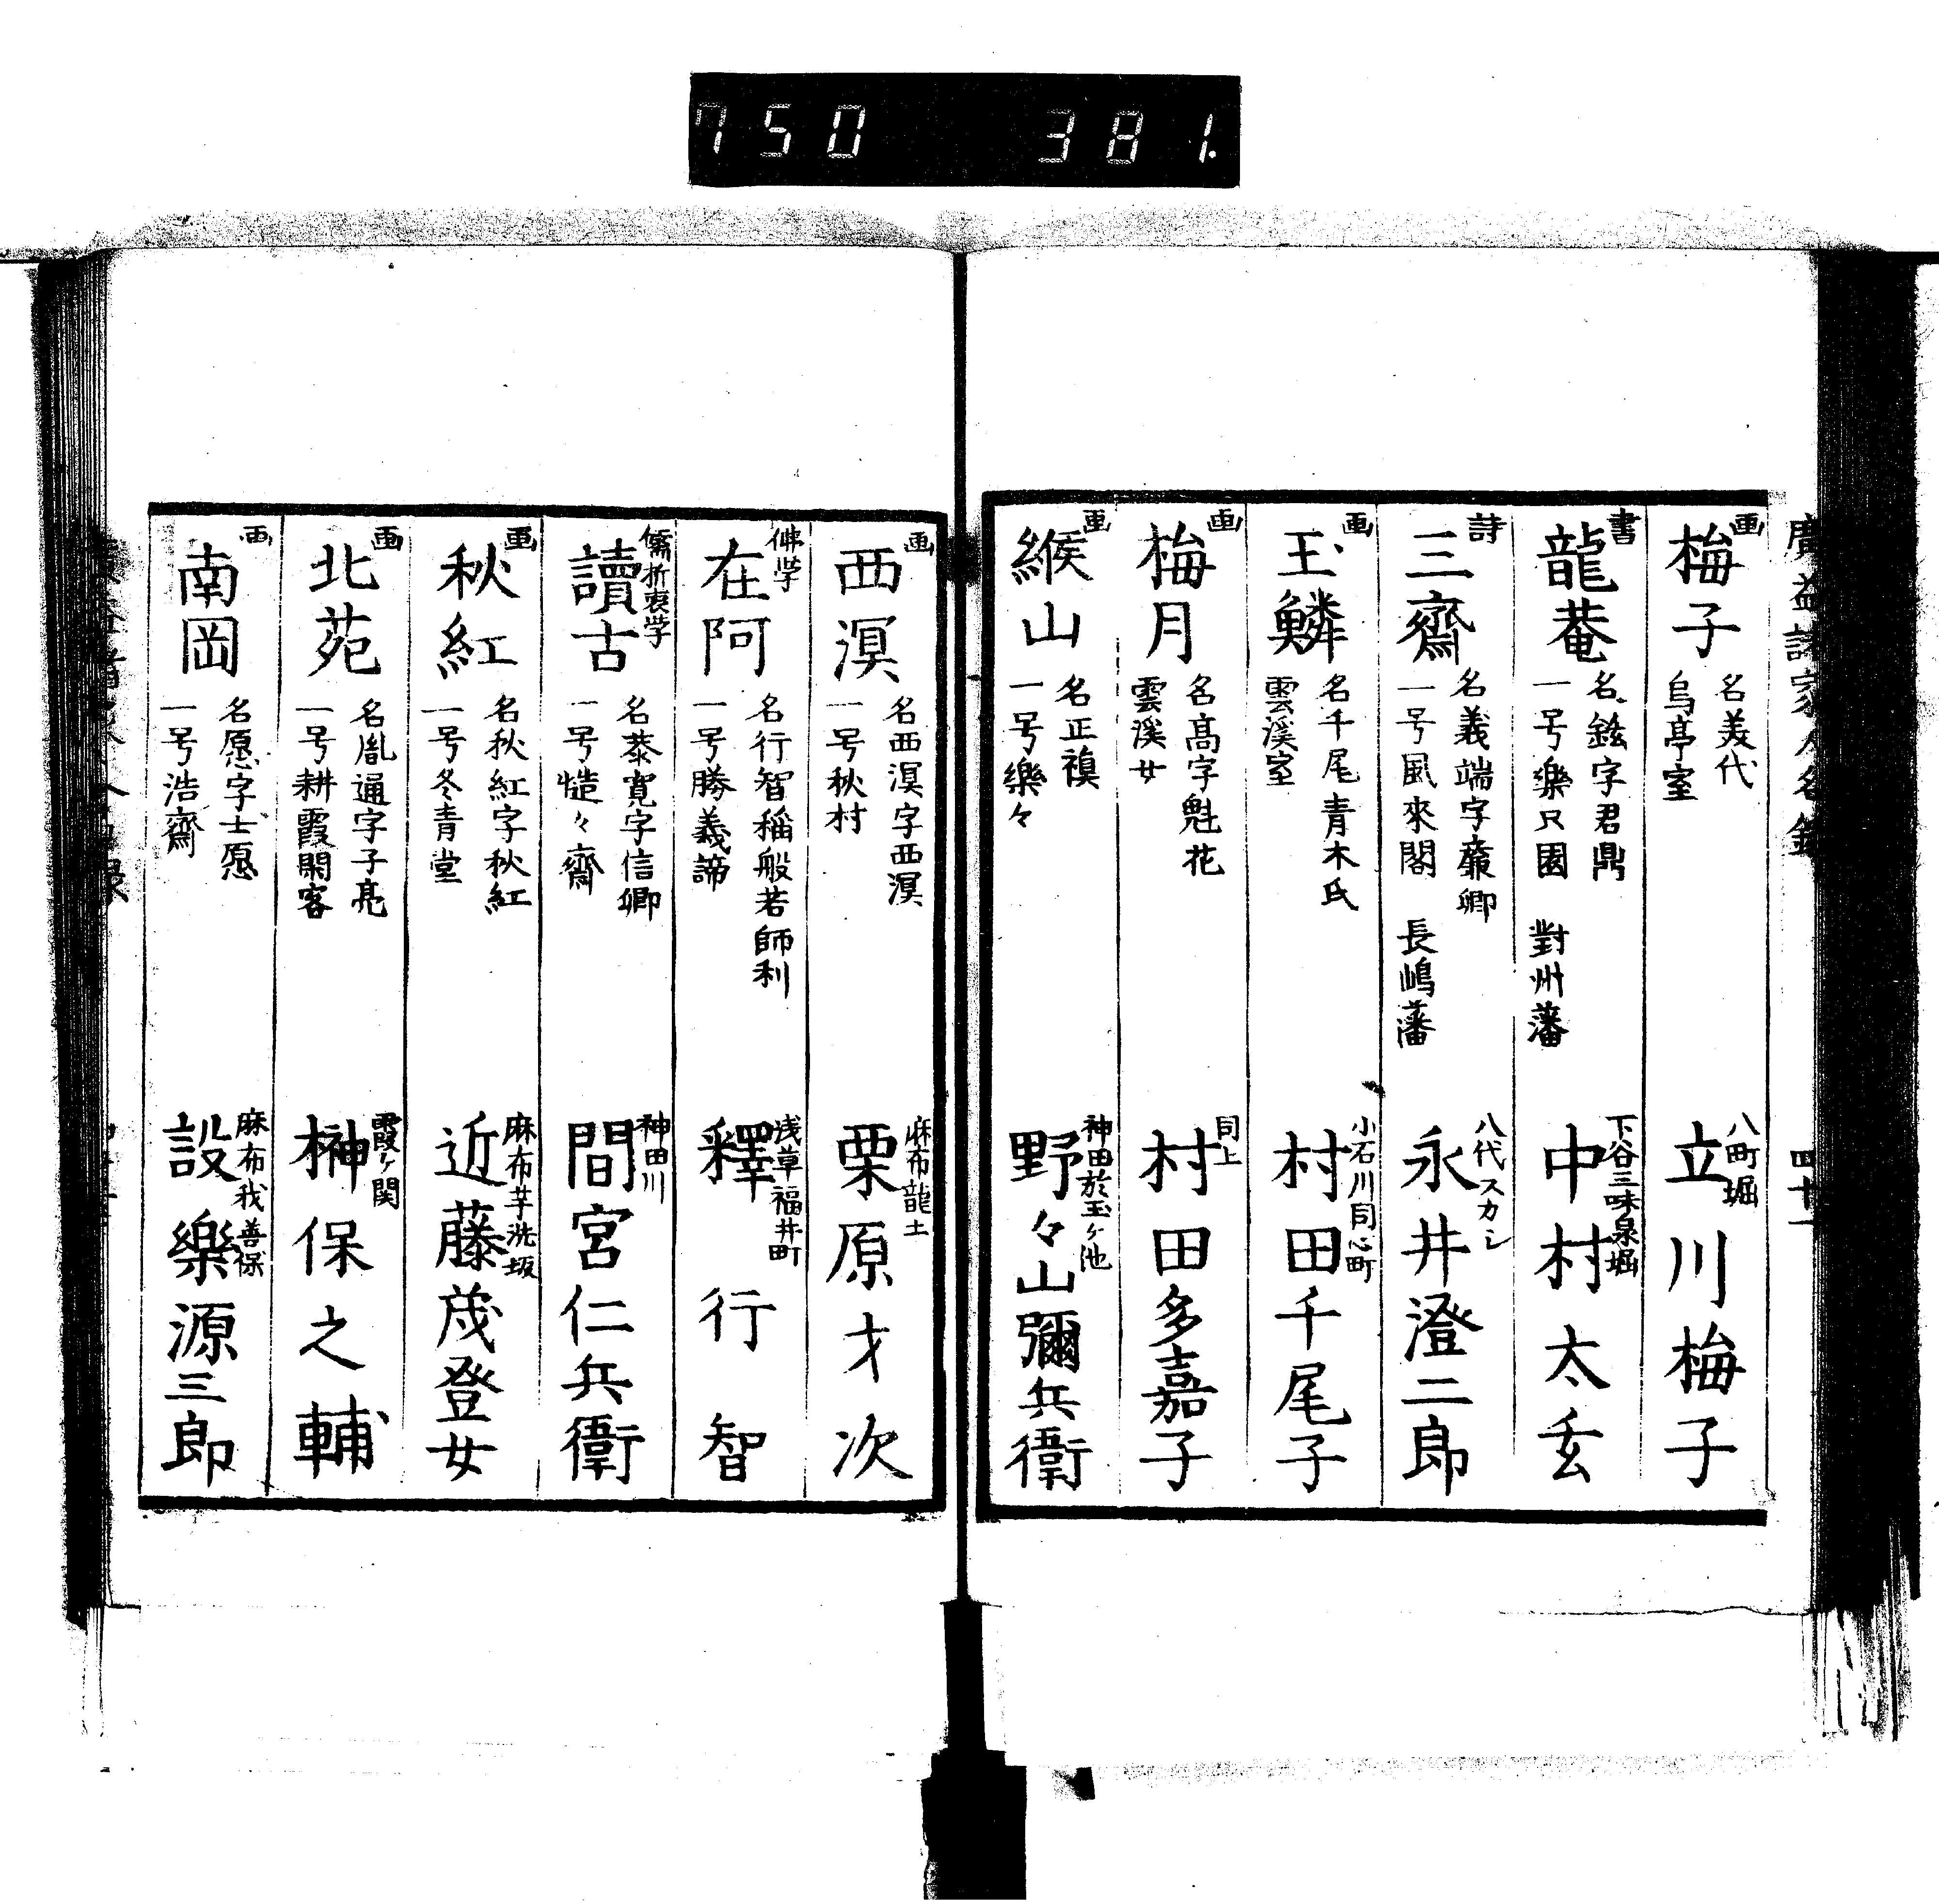 750 381.
廣益諸家人名録
四十一
画
梅子
名美代
烏亭室
八町堀
立川梅子
書
龍菴
名鉉字君鼎
一号樂只園 對州藩
下谷三味泉堀
中村太玄
詩
三齋
名義端字龐卿
一号風來閣 長嶋藩
八代スカシ
永井澄二郎
画
玉鱗
名千尾青木氏
雲溪室
小石川同心町
村田千尾子
画
梅月
名高字魁花
雲溪女
同上
村田多嘉子
画
緱山
名正禎
一号樂々
神田於玉ヶ池
野々山彌兵衛
画
西溟
名西溟字西溟
一号秋村
麻布龍土
栗原才次
佛学
在阿
名行智稱般若師利
一号勝義諦
浅草福井町
釋行智
儒折衷学
讀古
名恭寛字信卿
一号慥々齋
神田川
間宮仁兵衛
画
秋紅
名秋紅字秋紅
一号冬青堂
麻布芋洗坂
近藤茂登女
画
北苑
名胤通字子亮
一号耕霞閑客
霞ヶ関
榊保之輔
画
南岡
名愿字士愿
一号浩齋
麻布我善保
設樂源三郎